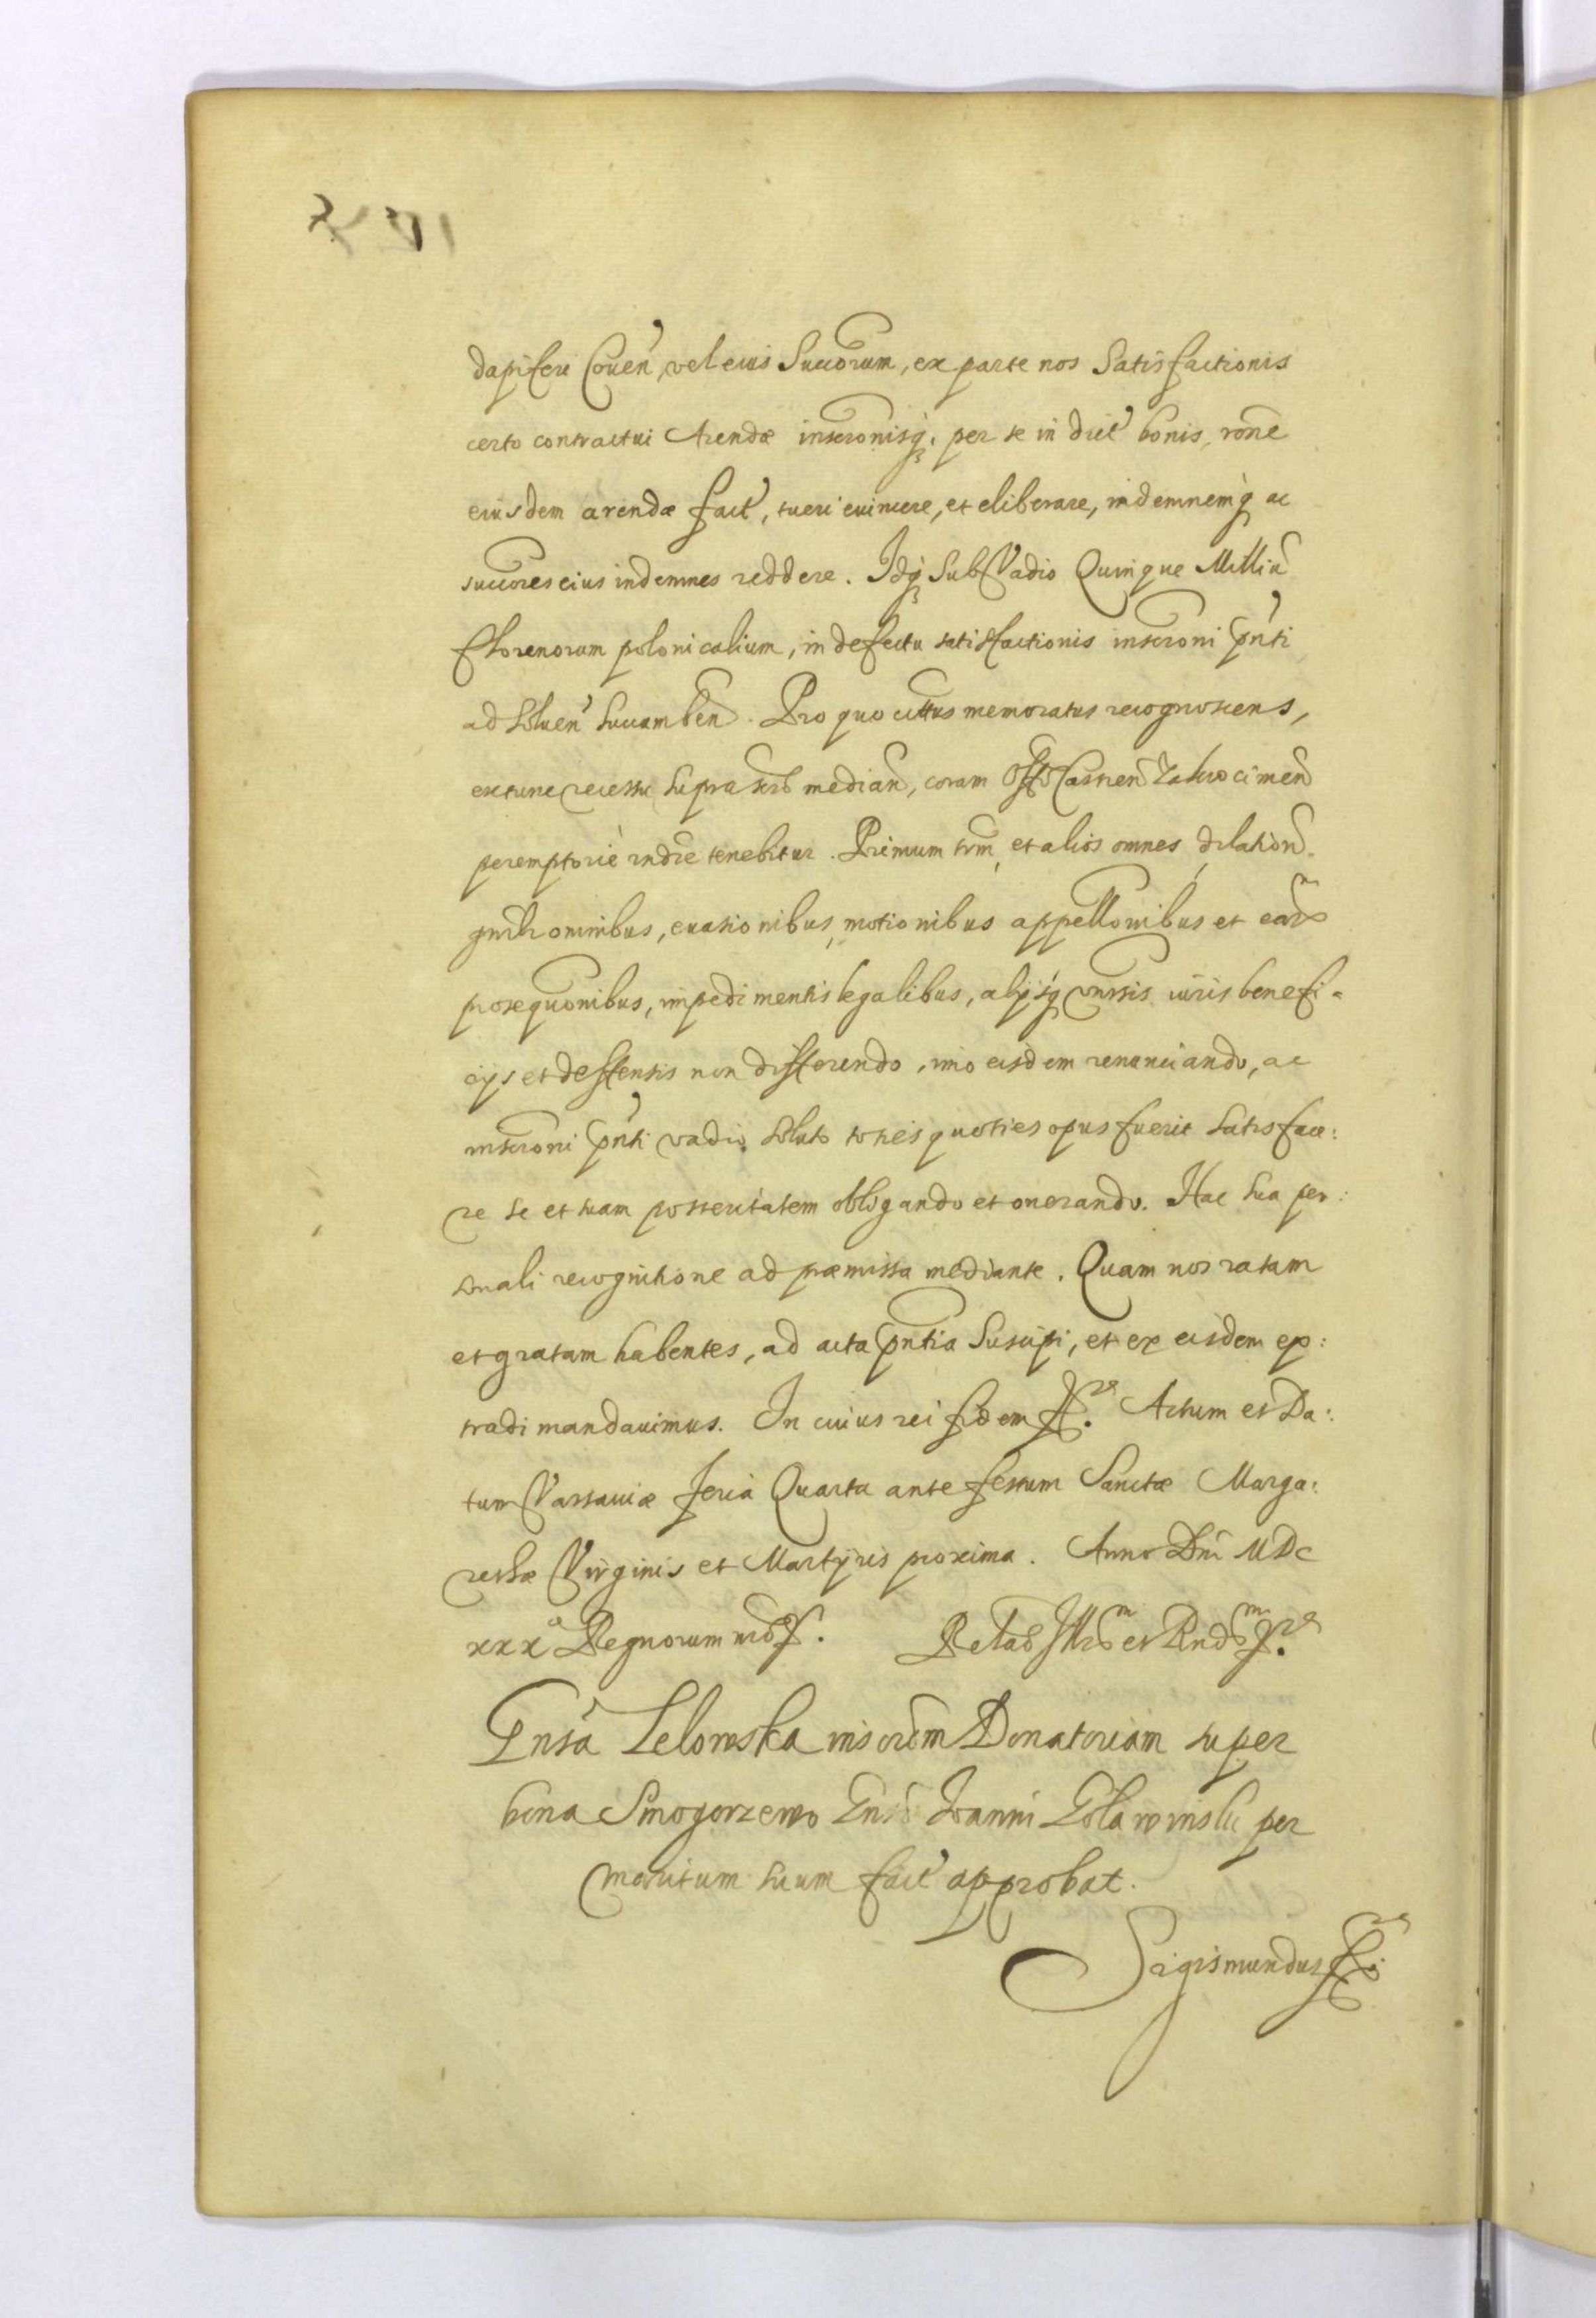 dapiferi Coveñ, vel eius Succorum, ex parte nos Satisfactionis
certo contractui Arendæ inscronisq; per se in dict bonis, rone
eiusdem arendæ fact, tueri evincere, et eliberare, indemnemq ac
succores eius indemnes reddere. Idq; sub Vadio Quinque Milliū
Florenorum polonicalium, in defectu satisfactionis inscroni pñti
ad solueñ succumben. Pro quo citus memoratus recognoscens,
ex tunc recessu suprascrō median, coram Offo Castren Zakrocimen
peremptorie rndre tenebitur. Primum trm, et alios omnes, dilation.
gnrlr omnibus, evasionibus, motionibus appellonibus et eard
prosequonibus, impedimentis legalibus, alijsq; vnrsis iuris benefi-
cijs et deffensis non differendo, imo eisdem renunciando, ac
inscroni pñti vadio soluto toties quoties opus fuerit satisface:
re se et suam posteritatem obligando et onerando. Hac sua per:
sonali recognitione ad præmissa mediante. Quam nos ratam
et gratam habentes, ad acta pntia Suscipi, et ex eisdem ex:
tradi mandauimus. In cuius rei fidem Actum et Da:
tum Varsauiæ feria Quarta ante festum Sanctæ Marga:
rethæ Virginis et Martyris proxima. Anno Dni MDC
xxx Regnorum nrō. Relaō Illrō et Rndō
Gnsa Lelowska inscrōm Donatoriam super
bona Smogorzewo Gnso Joanni Golawinski per
Maritum suum fact approbat.
Sigismundus